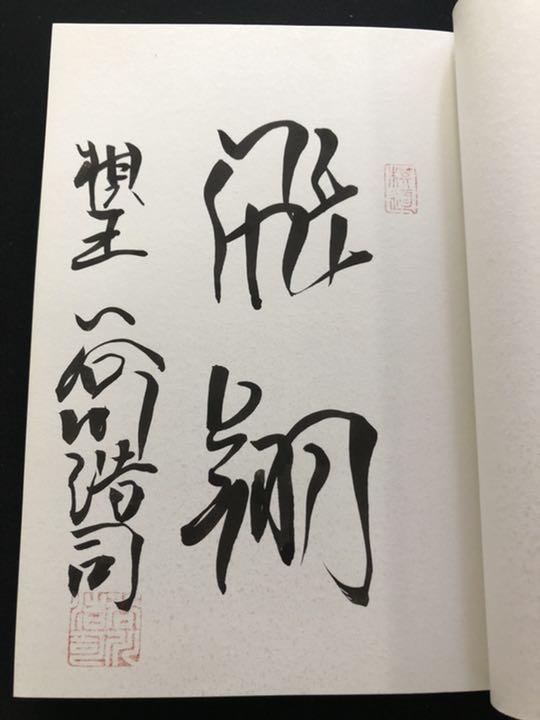 飛翔
棋王 谷川浩司